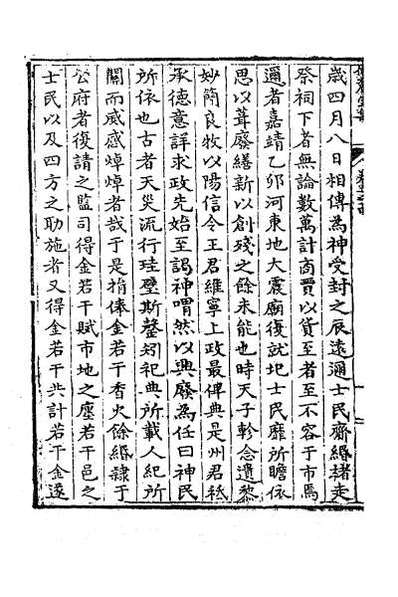 歲四月八日相傳為神受封之辰遠邇士民齋緡楮走
祭祠下者無論數萬計商賈以貨至者至不容于市焉
邇者嘉靖乙卯河東地大震廟復就圮士民靡所瞻依
思以葺廢繕新以創殘之餘未能也時天子軫念遺黎
妙簡良牧以陽信令王君維寧上政最俾典是州君祗
承德意詳求政先始至謁神喟然以興廢為任曰神民
所依也古者天災流行珪璧斯罄矧祀典所載人紀所
關而威感焯焯者哉于是捐俸金若干香火餘緡隸于
公府者復請之監司得金若干賦市地之廛若干邑之
士民以及四方之助施者又得金若干共計若干金遂